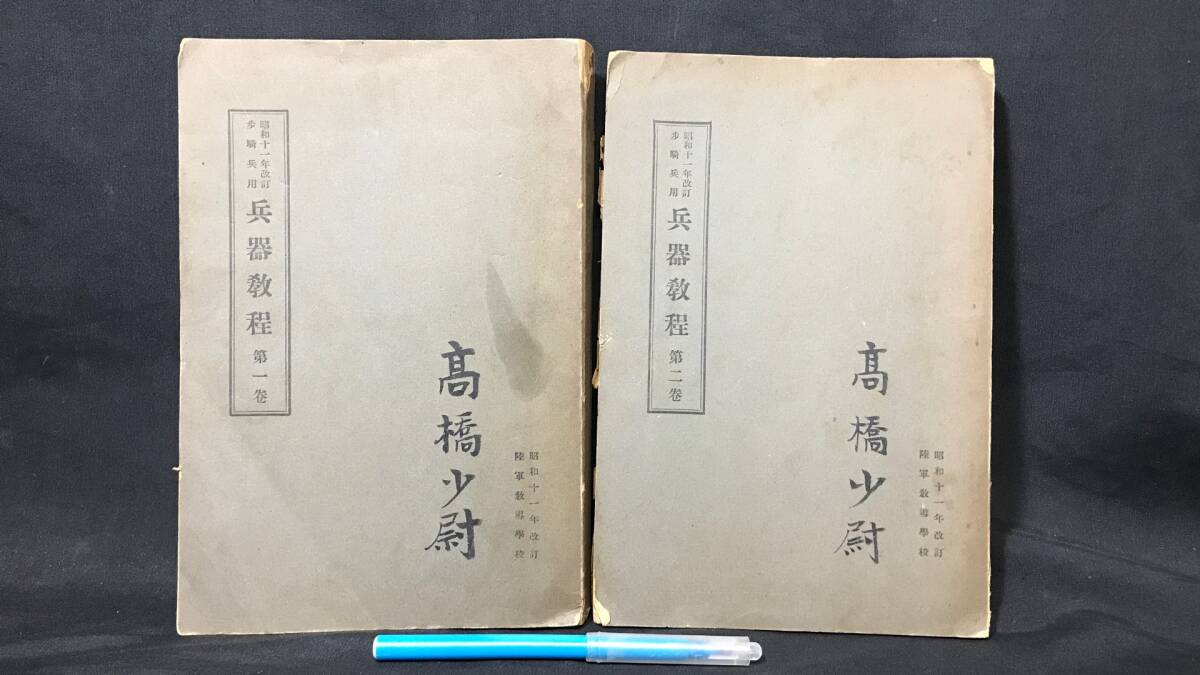 昭和十一年改訂
步騎兵用
兵器敎程 第一卷
髙橋少尉
昭和十一年改訂
陸軍敎導學校
昭和十一年改訂
步騎兵用
兵器敎程 第二卷
髙橋少尉
昭和十一年改訂
陸軍敎導學校